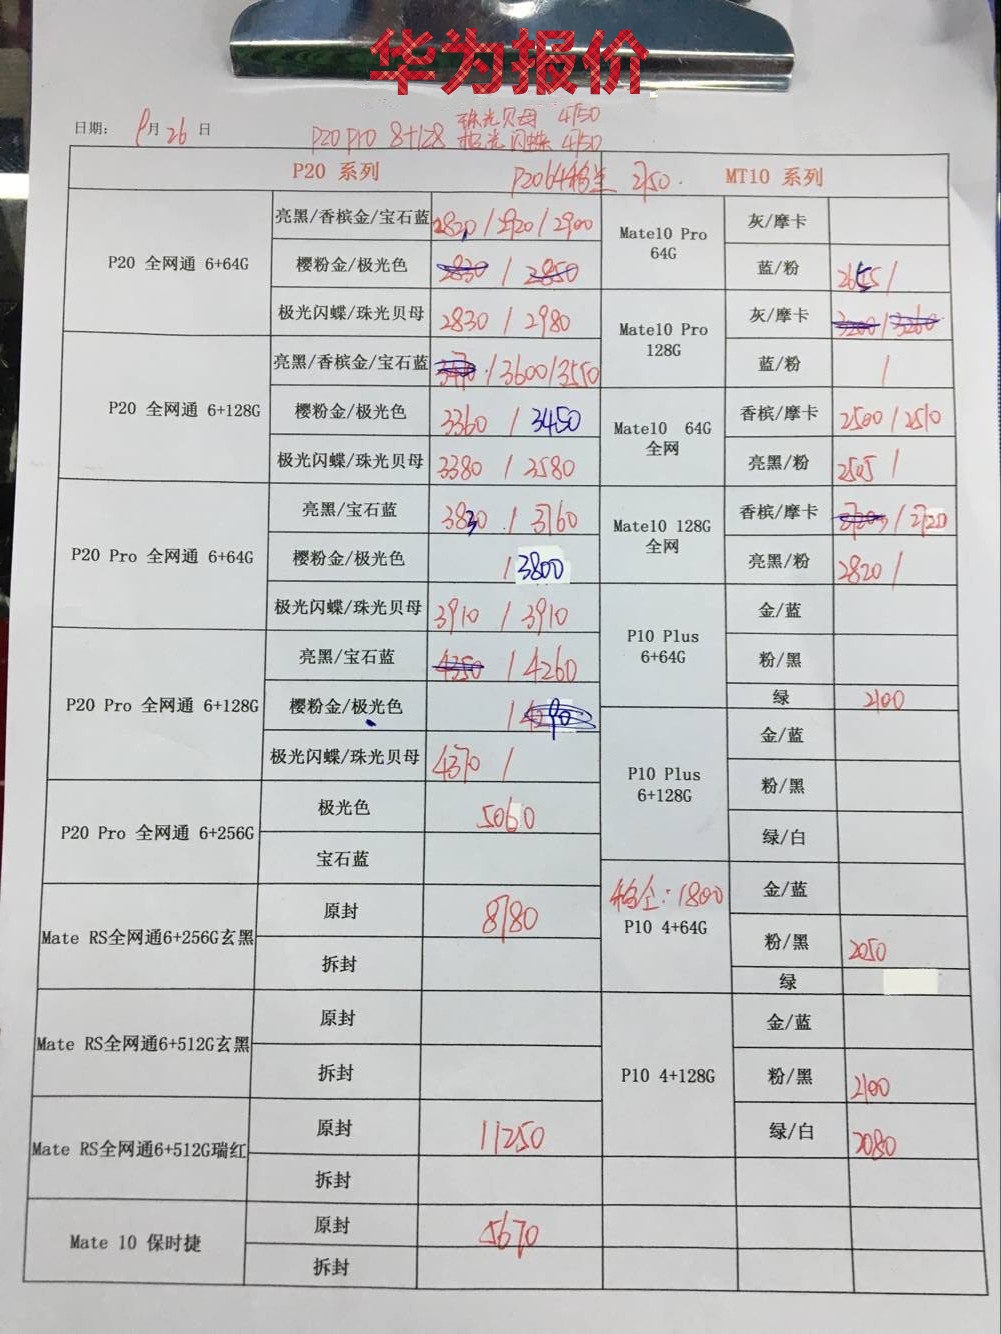 华为报价
日期: 9月26日
P20 Pro 8+128 珠光贝母 4150
极光闪蝶 4150
P20 系列 P20 64移全 2150. MT10 系列
P20 全网通 6+64G
亮黑/香槟金/宝石蓝 2820 / 2920 / 2900
樱粉金/极光色 2830 / 2850
极光闪蝶/珠光贝母 2830 / 2980
P20 全网通 6+128G
亮黑/香槟金/宝石蓝 / 3600 / 3550
樱粉金/极光色 3360 / 3450
极光闪蝶/珠光贝母 3380 / 3580
P20 Pro 全网通 6+64G
亮黑/宝石蓝 3830 / 3760
樱粉金/极光色 / 3800
极光闪蝶/珠光贝母 3910 / 3910
P20 Pro 全网通 6+128G
亮黑/宝石蓝 4350 / 4260
樱粉金/极光色 /
极光闪蝶/珠光贝母 4370 /
P20 Pro 全网通 6+256G
极光色 5060
宝石蓝
Mate RS全网通6+256G玄黑
原封 8780
拆封
Mate RS全网通6+512G玄黑
原封
拆封
Mate RS全网通6+512G瑞红
原封 11250
拆封
Mate 10 保时捷
原封 5670
拆封
Mate10 Pro
64G
灰/摩卡
蓝/粉 /
Mate10 Pro
128G
灰/摩卡 3200 / 3260
蓝/粉 /
Mate10 64G
全网
香槟/摩卡 2500 / 2510
亮黑/粉 2545 /
Mate10 128G
全网
香槟/摩卡 / 2720
亮黑/粉 2820 /
P10 Plus
6+64G
金/蓝
粉/黑
绿 2100
P10 Plus
6+128G
金/蓝
粉/黑
绿/白
移全: 1800
P10 4+64G
金/蓝
粉/黑 2050
绿
P10 4+128G
金/蓝
粉/黑 2100
绿/白 2080